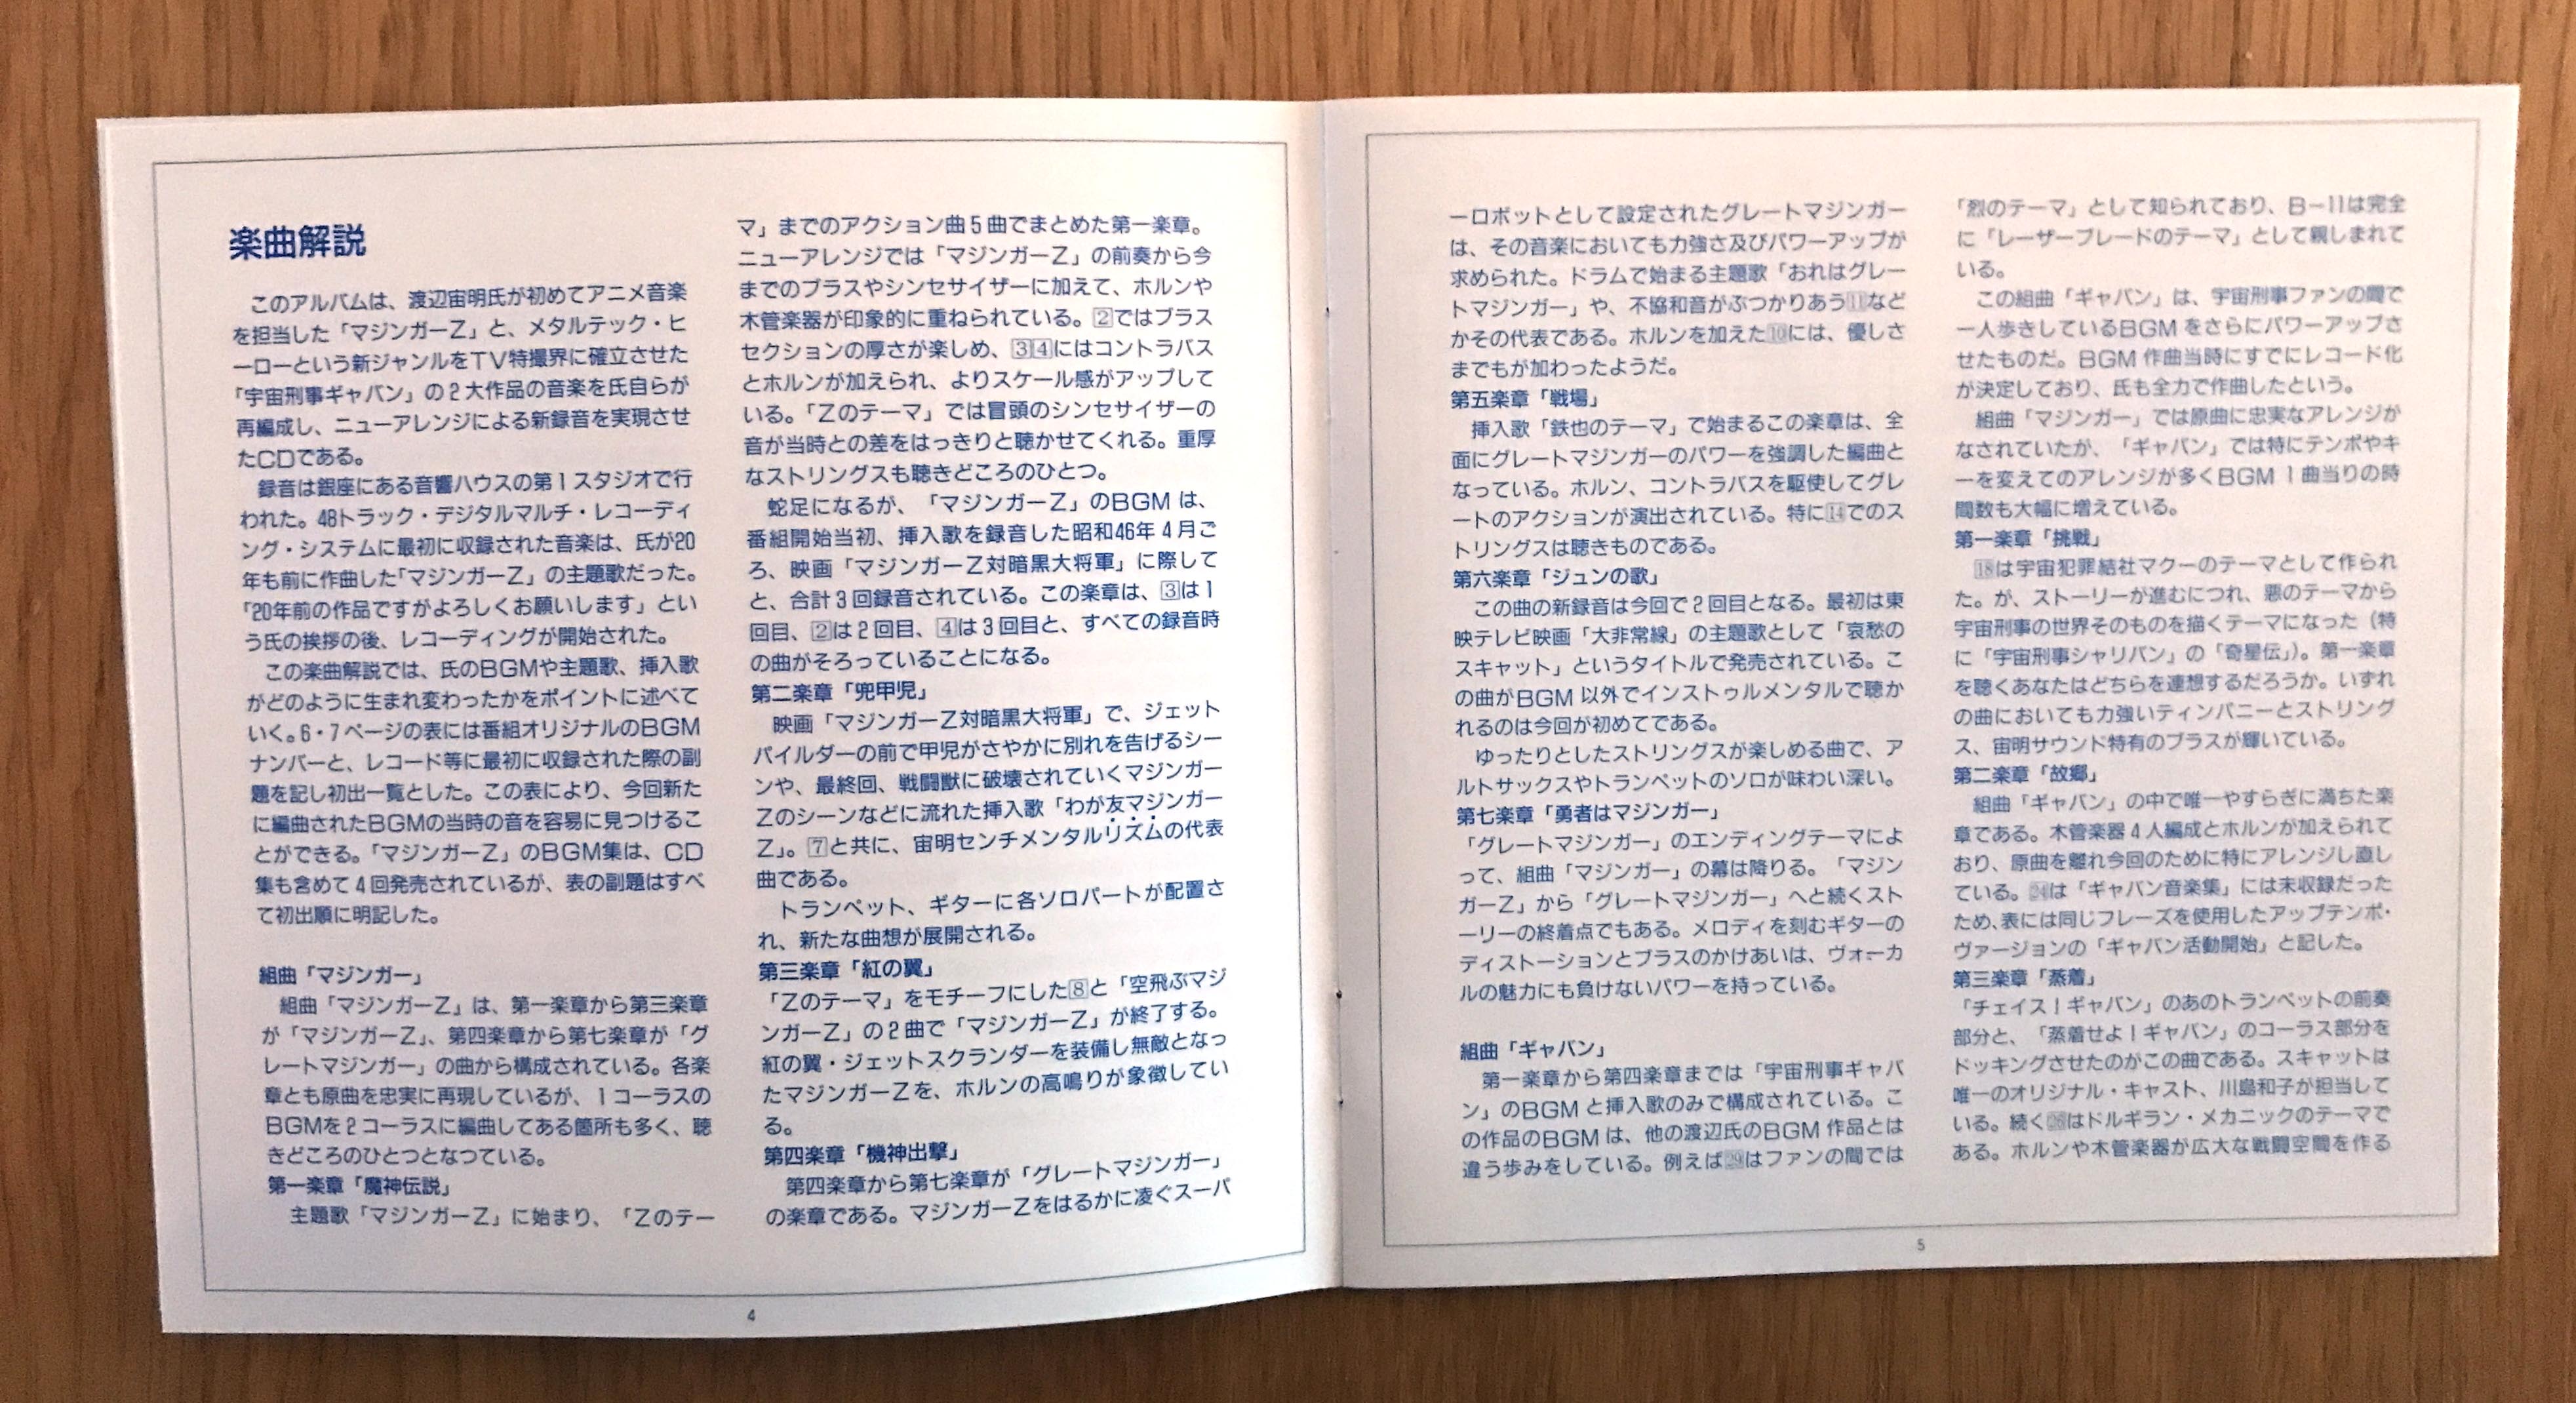 楽曲解説
このアルバムは、渡辺宙明氏が初めてアニメ音楽
を担当した「マジンガーZ」と、メタルテック・ヒ
ーローという新ジャンルをTV特撮界に確立させた
「宇宙刑事ギャバン」の2大作品の音楽を氏自らが
再編成し、ニューアレンジによる新録音を実現させ
たCDである。
録音は銀座にある音響ハウスの第1スタジオで行
われた。48トラック・デジタルマルチ・レコーディ
ング・システムに最初に収録された音楽は、氏が20
年も前に作曲した「マジンガーZ」の主題歌だった。
「20年前の作品ですがよろしくお願いします」とい
う氏の挨拶の後、レコーディングが開始された。
この楽曲解説では、氏のBGMや主題歌、挿入歌
がどのように生まれ変わったかをポイントに述べて
いく。6・7ページの表には番組オリジナルのBGM
ナンバーと、レコード等に最初に収録された際の副
題を記し初出一覧とした。この表により、今回新た
に編曲されたBGMの当時の音を容易に見つけるこ
とができる。「マジンガーZ」のBGM集は、CD
集も含めて4回発売されているが、表の副題はすべ
て初出順に明記した。
組曲「マジンガー」
組曲「マジンガーZ」は、第一楽章から第三楽章
が「マジンガーZ」、第四楽章から第七楽章が「グ
レートマジンガー」の曲から構成されている。各楽
章とも原曲を忠実に再現しているが、1コーラスの
BGMを2コーラスに編曲してある箇所も多く、聴
きどころのひとつとなつている。
第一楽章「魔神伝説」
主題歌「マジンガーZ」に始まり、「Zのテー
マ」までのアクション曲5曲でまとめた第一楽章。
ニューアレンジでは「マジンガーZ」の前奏から今
までのブラスやシンセサイザーに加えて、ホルンや
木管楽器が印象的に重ねられている。2ではブラス
セクションの厚さが楽しめ、34にはコントラバス
とホルンが加えられ、よりスケール感がアップして
いる。「Zのテーマ」では冒頭のシンセサイザーの
音が当時との差をはっきりと聴かせてくれる。重厚
なストリングスも聴きどころのひとつ。
蛇足になるが、「マジンガーZ」のBGMは、
番組開始当初、挿入歌を録音した昭和46年4月ご
ろ、映画「マジンガーZ対暗黒大将軍」に際して
と、合計3回録音されている。この楽章は、3は1
回目、2は2回目、4は3回目と、すべての録音時
の曲がそろっていることになる。
第二楽章「兜甲児」
映画「マジンガーZ対暗黒大将軍」で、ジェット
パイルダーの前で甲児がさやかに別れを告げるシー
ンや、最終回、戦闘獣に破壊されていくマジンガー
Zのシーンなどに流れた挿入歌「わが友マジンガー
Z」。7と共に、宙明センチメンタルリズムの代表
曲である。
トランペット、ギターに各ソロパートが配置さ
れ、新たな曲想が展開される。
第三楽章「紅の翼」
「Zのテーマ」をモチーフにした8と「空飛ぶマジ
ンガーZ」の2曲で「マジンガーZ」が終了する。
紅の翼・ジェットスクランダーを装備し無敵となっ
たマジンガーZを、ホルンの高鳴りが象徴してい
る。
第四楽章「機神出撃」
第四楽章から第七楽章が「グレートマジンガー」
の楽章である。マジンガーZをはるかに凌ぐスーパ
4
ーロボットとして設定されたグレートマジンガー
は、その音楽においても力強さ及びパワーアップが
求められた。ドラムで始まる主題歌「おれはグレー
トマジンガー」や、不協和音がぶつかりあう11など
がその代表である。ホルンを加えた10には、優しさ
までもが加わったようだ。
第五楽章「戦場」
挿入歌「鉄也のテーマ」で始まるこの楽章は、全
面にグレートマジンガーのパワーを強調した編曲と
なっている。ホルン、コントラバスを駆使してグレ
ートのアクションが演出されている。特に14でのス
トリングスは聴きものである。
第六楽章「ジュンの歌」
この曲の新録音は今回で2回目となる。最初は東
映テレビ映画「大非常線」の主題歌として「哀愁の
スキャット」というタイトルで発売されている。こ
の曲がBGM以外でインストゥルメンタルで聴か
れるのは今回が初めてである。
ゆったりとしたストリングスが楽しめる曲で、ア
ルトサックスやトランペットのソロが味わい深い。
第七楽章「勇者はマジンガー」
「グレートマジンガー」のエンディングテーマによ
って、組曲「マジンガー」の幕は降りる。「マジン
ガーZ」から「グレートマジンガー」へと続くスト
ーリーの終着点でもある。メロディを刻むギターの
ディストーションとブラスのかけあいは、ヴォーカ
ルの魅力にも負けないパワーを持っている。
組曲「ギャバン」
第一楽章から第四楽章までは「宇宙刑事ギャバ
ン」のBGMと挿入歌のみで構成されている。こ
の作品のBGMは、他の渡辺氏のBGM作品とは
違う歩みをしている。例えば29はファンの間では
「烈のテーマ」として知られており、B－11は完全
に「レーザーブレードのテーマ」として親しまれて
いる。
この組曲「ギャバン」は、宇宙刑事ファンの間で
一人歩きしているBGMをさらにパワーアップさ
せたものだ。BGM作曲当時にすでにレコード化
が決定しており、氏も全力で作曲したという。
組曲「マジンガー」では原曲に忠実なアレンジが
なされていたが、「ギャバン」では特にテンポやキ
ーを変えてのアレンジが多くBGM1曲当りの時
間数も大幅に増えている。
第一楽章「挑戦」
18は宇宙犯罪結社マクーのテーマとして作られ
た。が、ストーリーが進むにつれ、悪のテーマから
宇宙刑事の世界そのものを描くテーマになった（特
に「宇宙刑事シャリバン」の「奇星伝」）。第一楽章
を聴くあなたはどちらを連想するだろうか。いずれ
の曲においても力強いティンパニーとストリング
ス、宙明サウンド特有のブラスが輝いている。
第二楽章「故郷」
組曲「ギャバン」の中で唯一やすらぎに満ちた楽
章である。木管楽器4人編成とホルンが加えられて
おり、原曲を離れ今回のために特にアレンジし直し
ている。24は「ギャバン音楽集」には未収録だった
ため、表には同じフレーズを使用したアップテンポ・
ヴァージョンの「ギャバン活動開始」と記した。
第三楽章「蒸着」
「チェイス！ギャバン」のあのトランペットの前奏
部分と、「蒸着せよ！ギャバン」のコーラス部分を
ドッキングさせたのがこの曲である。スキャットは
唯一のオリジナル・キャスト、川島和子が担当して
いる。続く26はドルギラン・メカニックのテーマで
ある。ホルンや木管楽器が広大な戦闘空間を作る
5